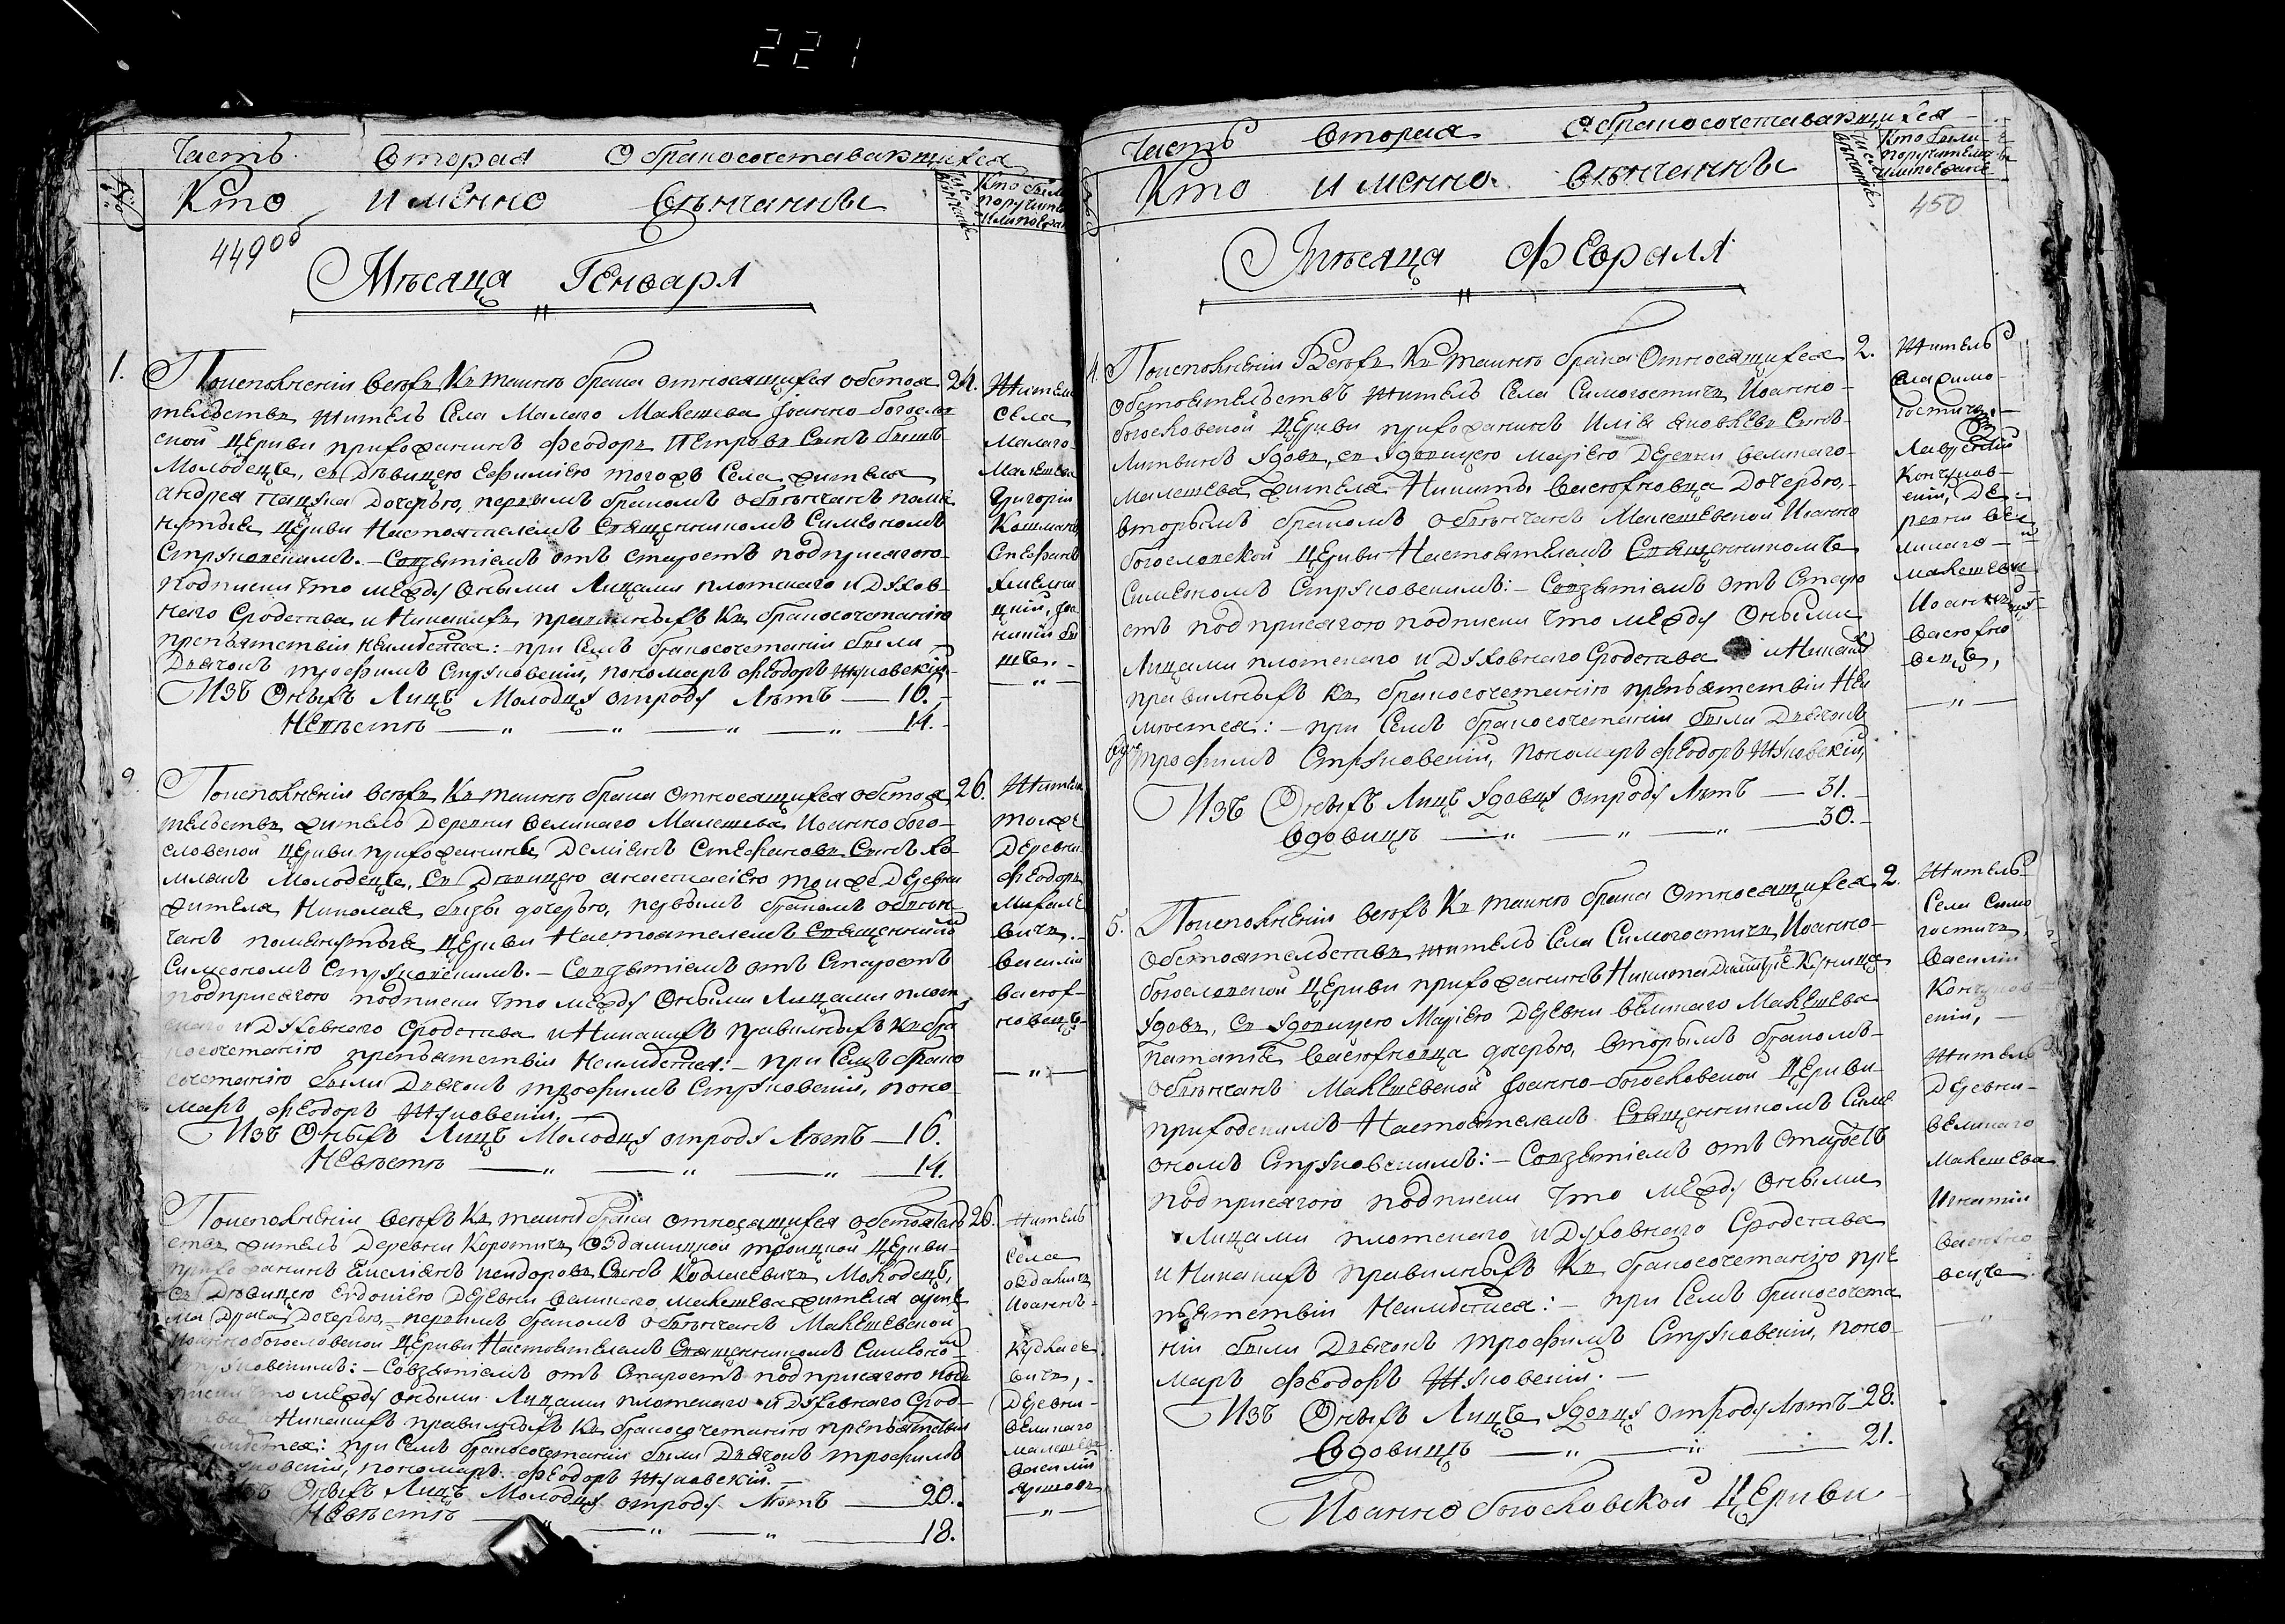 221
Часть Вторая О бракосочетавающихся
Кто именно Вѣнчанны
Кто были поручители
449об
Мѣсяца Генваря
1.
Поисполненіи всехъ къ таинству брака относящихся обстоя
24.
тельствъ житель Села Малаго Малешева Іоанно-богослов
ской Церкви прихожанинъ Феодоръ Петровъ Сынъ
Молодецъ, съ Дѣвицею Ефиміею тогожъ Села жителя
андрея Дочерью, первымъ бракомъ обвѣнчанъ помя
нутыя Церкви Настоятелемъ Священникомъ Симеономъ
Струковскимъ. – Совзятіемъ отъ старостъ подприсягою
подписки что между оными Лицами плотскаго и Духов-
наго Сродства и Никакихъ правилныхъ къ бракосочетанію
препятствій неимѣется: – при семъ бракосочетаніи были
Дьячокъ трофимъ Струковскій, пономарь Феодоръ Жуковскій.
Изъ Оныхъ Лицъ Молодцу отроду Лѣтъ — 16.
Невѣстѣ — „ — „ — „ — „ — 14.
Житель
села
Малаго
Малешева
Григорій
Стефанъ
2.
Поисполненіи всехъ къ таинству брака относящихся обстоя
26.
тельствъ житель Деревни великаго Малешева Іоанно бого-
словской Церкви прихожанинъ Демьянъ Стефановъ Сынъ Хо
милакъ Молодецъ, съ Дѣвицею анастасіею тоижъ Деревни
жителя Николая дочерью, первымъ бракомъ обвѣн
чанъ помянутыя Церкви Настоятелемъ Священникомъ
Симеономъ Струковскимъ. – Совзятіемъ отъ Старостъ
подприсягою подписки что между Оными Лицами плот
скаго и Духовнаго Сродства и Никакихъ правилныхъ къ бра
косочетанію препятствій Неимѣется: – при Семъ брако
сочетанію были Дьячокъ трофимъ Струковскій, поно
марь Феодоръ Жуковскій. –
Изъ Оныхъ Лицъ Молодцу отроду Лѣтъ — 16.
Невѣстѣ — „ — „ — „ — 14.
Житель
тоижъ
Деревни
Феодоръ
Михале
вичъ. –
Василій
Васюх-
новецъ
Поисполненіи всехъ къ таинству брака относящихся обстоятель
26.
ствъ житель Деревни Коротичъ Оздамицкой троицкой Церкви
прихожанинъ Емельянъ Сынъ Молодецъ,
съ Дѣвицею Евдокіею Деревни великаго Малешева жителя
Дочерью, – первымъ бракомъ обвѣнчанъ Малешевской
Іоаннобогословской Церкви Настоятелемъ Священникомъ Симеоно
Струковскимъ: – Совзятіемъ отъ Старостъ подприсягою под
писки что между оными Лицами плотскаго и Духовнаго Срод-
ства и Никакихъ правилныхъ къ бракосочетанію препятствій
неимѣется: при Семъ бракосочетаніи были Дьячокъ трофимъ
Струковскій, пономарь Феодоръ Жуковскій. –
Изъ Оныхъ Лицъ Молодцу отроду Лѣтъ — 20.
Невѣстѣ — „ — „ — „ — 18.
Житель
Села
Іоаннъ
Деревни
великаго
Малешева
Василій
Часть Вторая О бракосочетавающихся
Кто именно вѣнчанны
Кто были
поручители
450
Мѣсяца Февраля
4.
Поисполненіи Всехъ Къ таинству брака Относящихся
2.
обстоятельствъ житель Села Симогостичъ Іоанно-
богословской Церкви прихожанинъ Илія Яковлевъ Сынъ
Литвинъ Удовъ, съ Удовицею Маріею Деревни великаго
Малешева жителя Никиты Васюхновца Дочерью, –
вторымъ бракомъ обвѣнчанъ Малешевской Іоанно
богословской Церкви Настоятелемъ Священникомъ
Симеономъ Струковскимъ: – Совзятіемъ отъ Старо
стъ подприсягою подписки что между Оными
Лицами плотскаго и Духовнаго Сродства и Никаких
правилныхъ къ бракосочетанію препятствій Неи
мѣется: – при Семъ бракосочетаніи были Дьячокъ
трофимъ Струковскій, пономарь Феодоръ Жуковскій,
Изъ Оныхъ Лицъ Удовцу отроду Лѣтъ — 31.
Вдовицѣ — „ — „ — „ — 30.
Житель
села Симо-
гостичъ –
Кончуков-
скій, Де-
ревни ве-
ликаго –
Малешева
Іоаннъ
Васюхно
вецъ,
5.
Поисполненіи всехъ Къ таинству брака Относящихся
2.
Обстоятельствъ житель Села Симогостичъ Іоанно-
богословской Церкви прихожанинъ Никита
Удовъ, съ Удовицею Маріею Деревни великаго Малешева
Васюхновца дочерью, вторымъ бракомъ
обвѣнчанъ Малешевской Іоанно-богословской Церкви
приходскимъ Настоятелемъ Священникомъ Симе
ономъ Струковскимъ: – Совзятіемъ отъ Старостъ
подприсягою подписки что между Оными
Лицами плотскаго и Духовнаго Сродства
и Никакихъ правилныхъ Къ бракосочетанію пре
пятствій Неимѣется: – при Семъ бракосочета
ніи были Дьячокъ трофимъ Струковскій, поно-
марь Феодоръ Жуковскій. –
Изъ Оныхъ Лицъ Удовцу отроду Лѣтъ — 28.
Вдовицѣ — „ — „ — 21.
Житель
Села Симо
гостичъ
Василій
Кончуков
скій, –
Житель
Деревни
великаго
Малешева
Игнатій
Васюхно
вецъ
Іоанно богословской Церкви